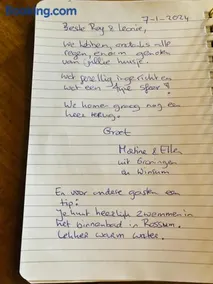 Booking.com
7-1-2024
Beste Roy & Leonie,
We hebben, ondanks alle
regen, enorm genoten
van jullie huisje.
Wat gezellig ingericht en
wat een fijne sfeer!
We komen graag nog een
keer terug.
Groet
Martine & Ellen
uit Groningen
en Winsum
En voor andere gasten een
tip:
Je kunt heerlijk zwemmen in
het binnenbad in Rossum.
Lekker warm water.